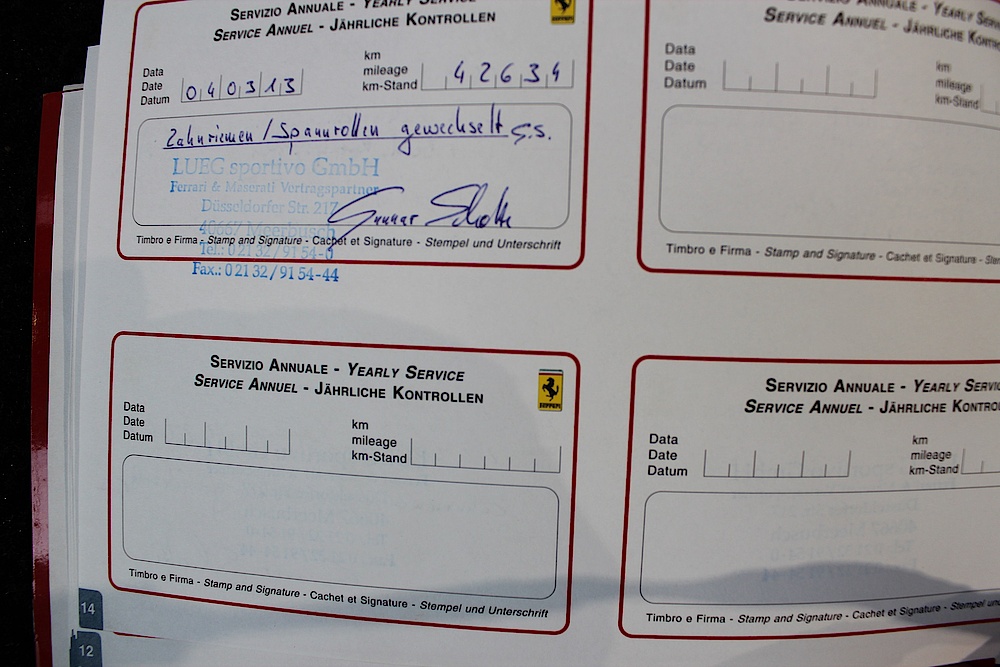 SERVIZIO ANNUALE - YEARLY SERVICE
SERVICE ANNUEL - JÄHRLICHE KONTROLLEN
Ferrari
Data
Date
Datum
040313
km
mileage
km-Stand
42634
Zahnriemen / Spannrollen gewechselt G.S.
LUEG sportivo GmbH
Ferrari & Maserati Vertragspartner
Düsseldorfer Str. 217
40667 Meerbusch
Tel.: 0 21 32 / 91 54-0
Fax.: 0 21 32 / 91 54-44
Gunnar
Timbro e Firma - Stamp and Signature - Cachet et Signature - Stempel und Unterschrift
ANNUALE - YEARLY
SERVICE ANNUEL - JÄHRLICHE
Data
Date
Datum
km
mileage
km-Stand
Timbro e Firma - Stamp and Signature - Cachet et Signature -
SERVIZIO ANNUALE - YEARLY SERVICE
SERVICE ANNUEL - JÄHRLICHE KONTROLLEN
Ferrari
Data
Date
Datum
km
mileage
km-Stand
Timbro e Firma - Stamp and Signature - Cachet et Signature - Stempel und Unterschrift
SERVIZIO ANNUALE - YEARLY
SERVICE ANNUEL - JÄHRLICHE
Data
Date
Datum
km
mileage
km-Stand
Timbro e Firma - Stamp and Signature - Cachet et Signature - Stempel
14
12